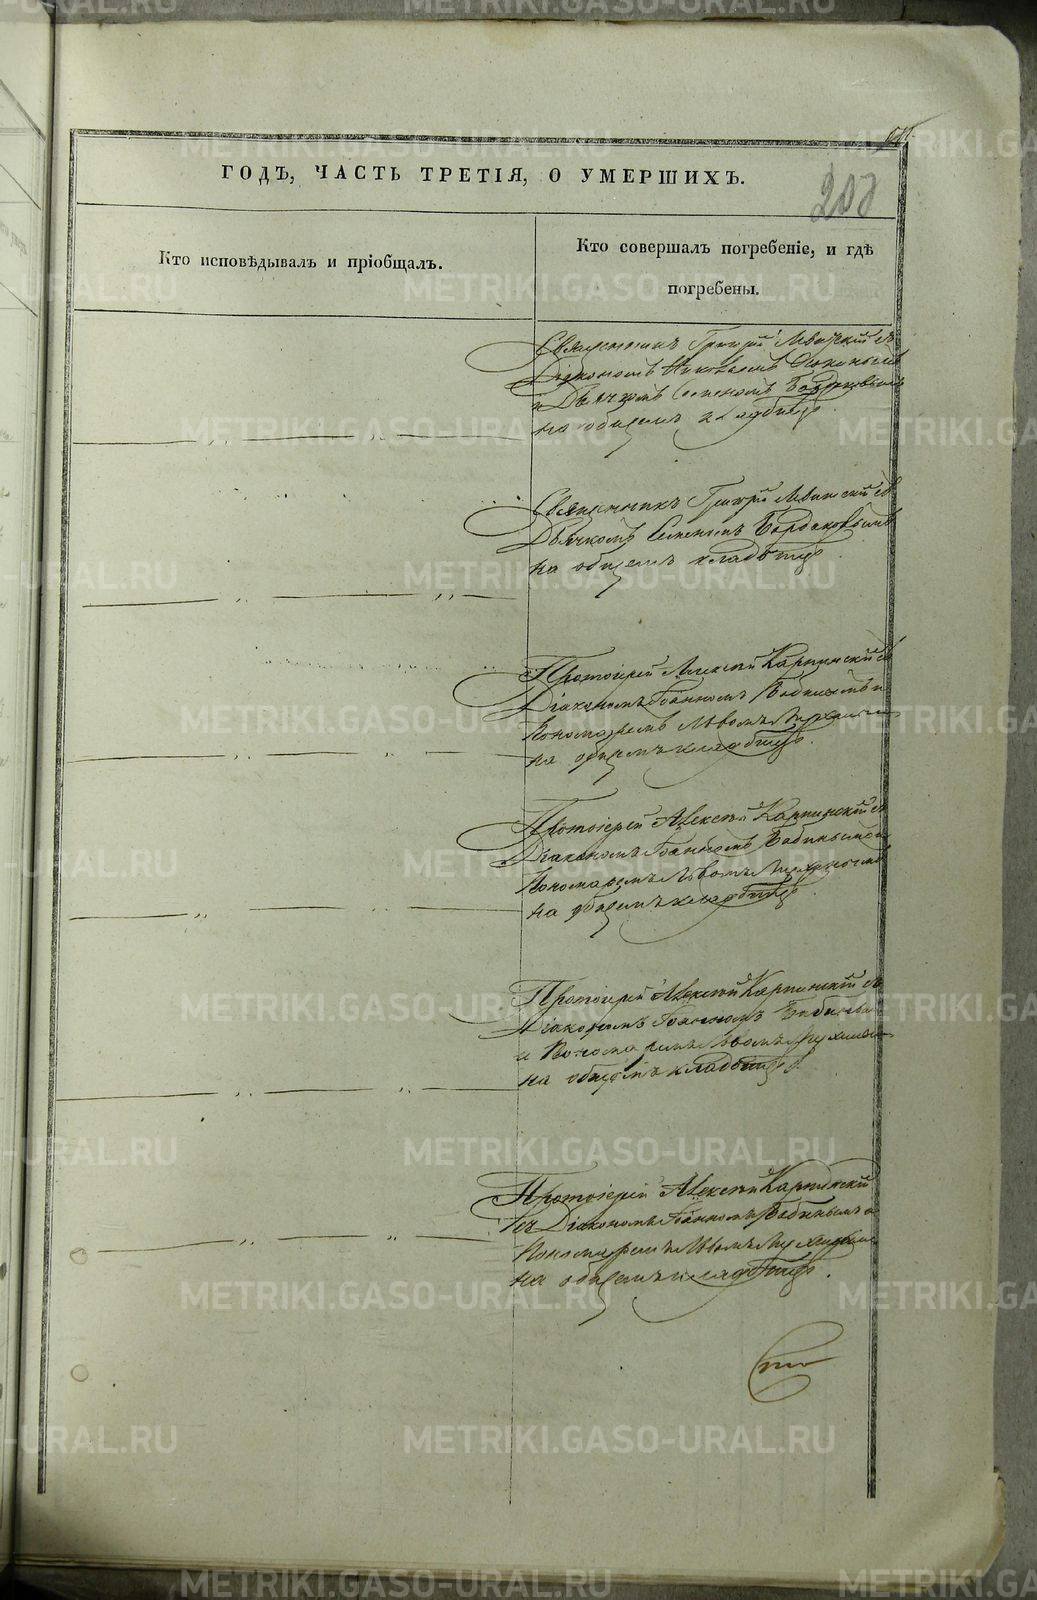 ГОДЪ, ЧАСТЬ ТРЕТІЯ, О УМЕРШИХЪ.
Кто исповѣдывалъ и пріобщалъ.
Кто совершалъ погребеніе, и гдѣ
погребены.
Священникъ Григорій Левицкій съ
Діакономъ Николаемъ
и Дьячкомъ Семеномъ
на общемъ кладбищѣ.
Священникъ Григорій Левицкій съ
Дьячкомъ Семеномъ Бардаковымъ
на общемъ кладбищѣ.
Протоіерей Алексѣй Карпинскій съ
Діакономъ Іоанномъ Бабинымъ и
Пономаремъ Львомъ
на общемъ кладбищѣ.
Протоіерей Алексѣй Карпинскій съ
Діакономъ Іоанномъ Бабинымъ и
Пономаремъ Львомъ
на общемъ кладбищѣ.
Протоіерей Алексѣй Карпинскій съ
Діакономъ Іоанномъ Бабинымъ
и Пономаремъ Львомъ
на общемъ кладбищѣ.
Протоіерей Алексѣй Карпинскій
съ Діакономъ Іоанномъ Бабинымъ и
Пономаремъ Львомъ
на общемъ кладбищѣ.
METRIKI.GASO-URAL.RU